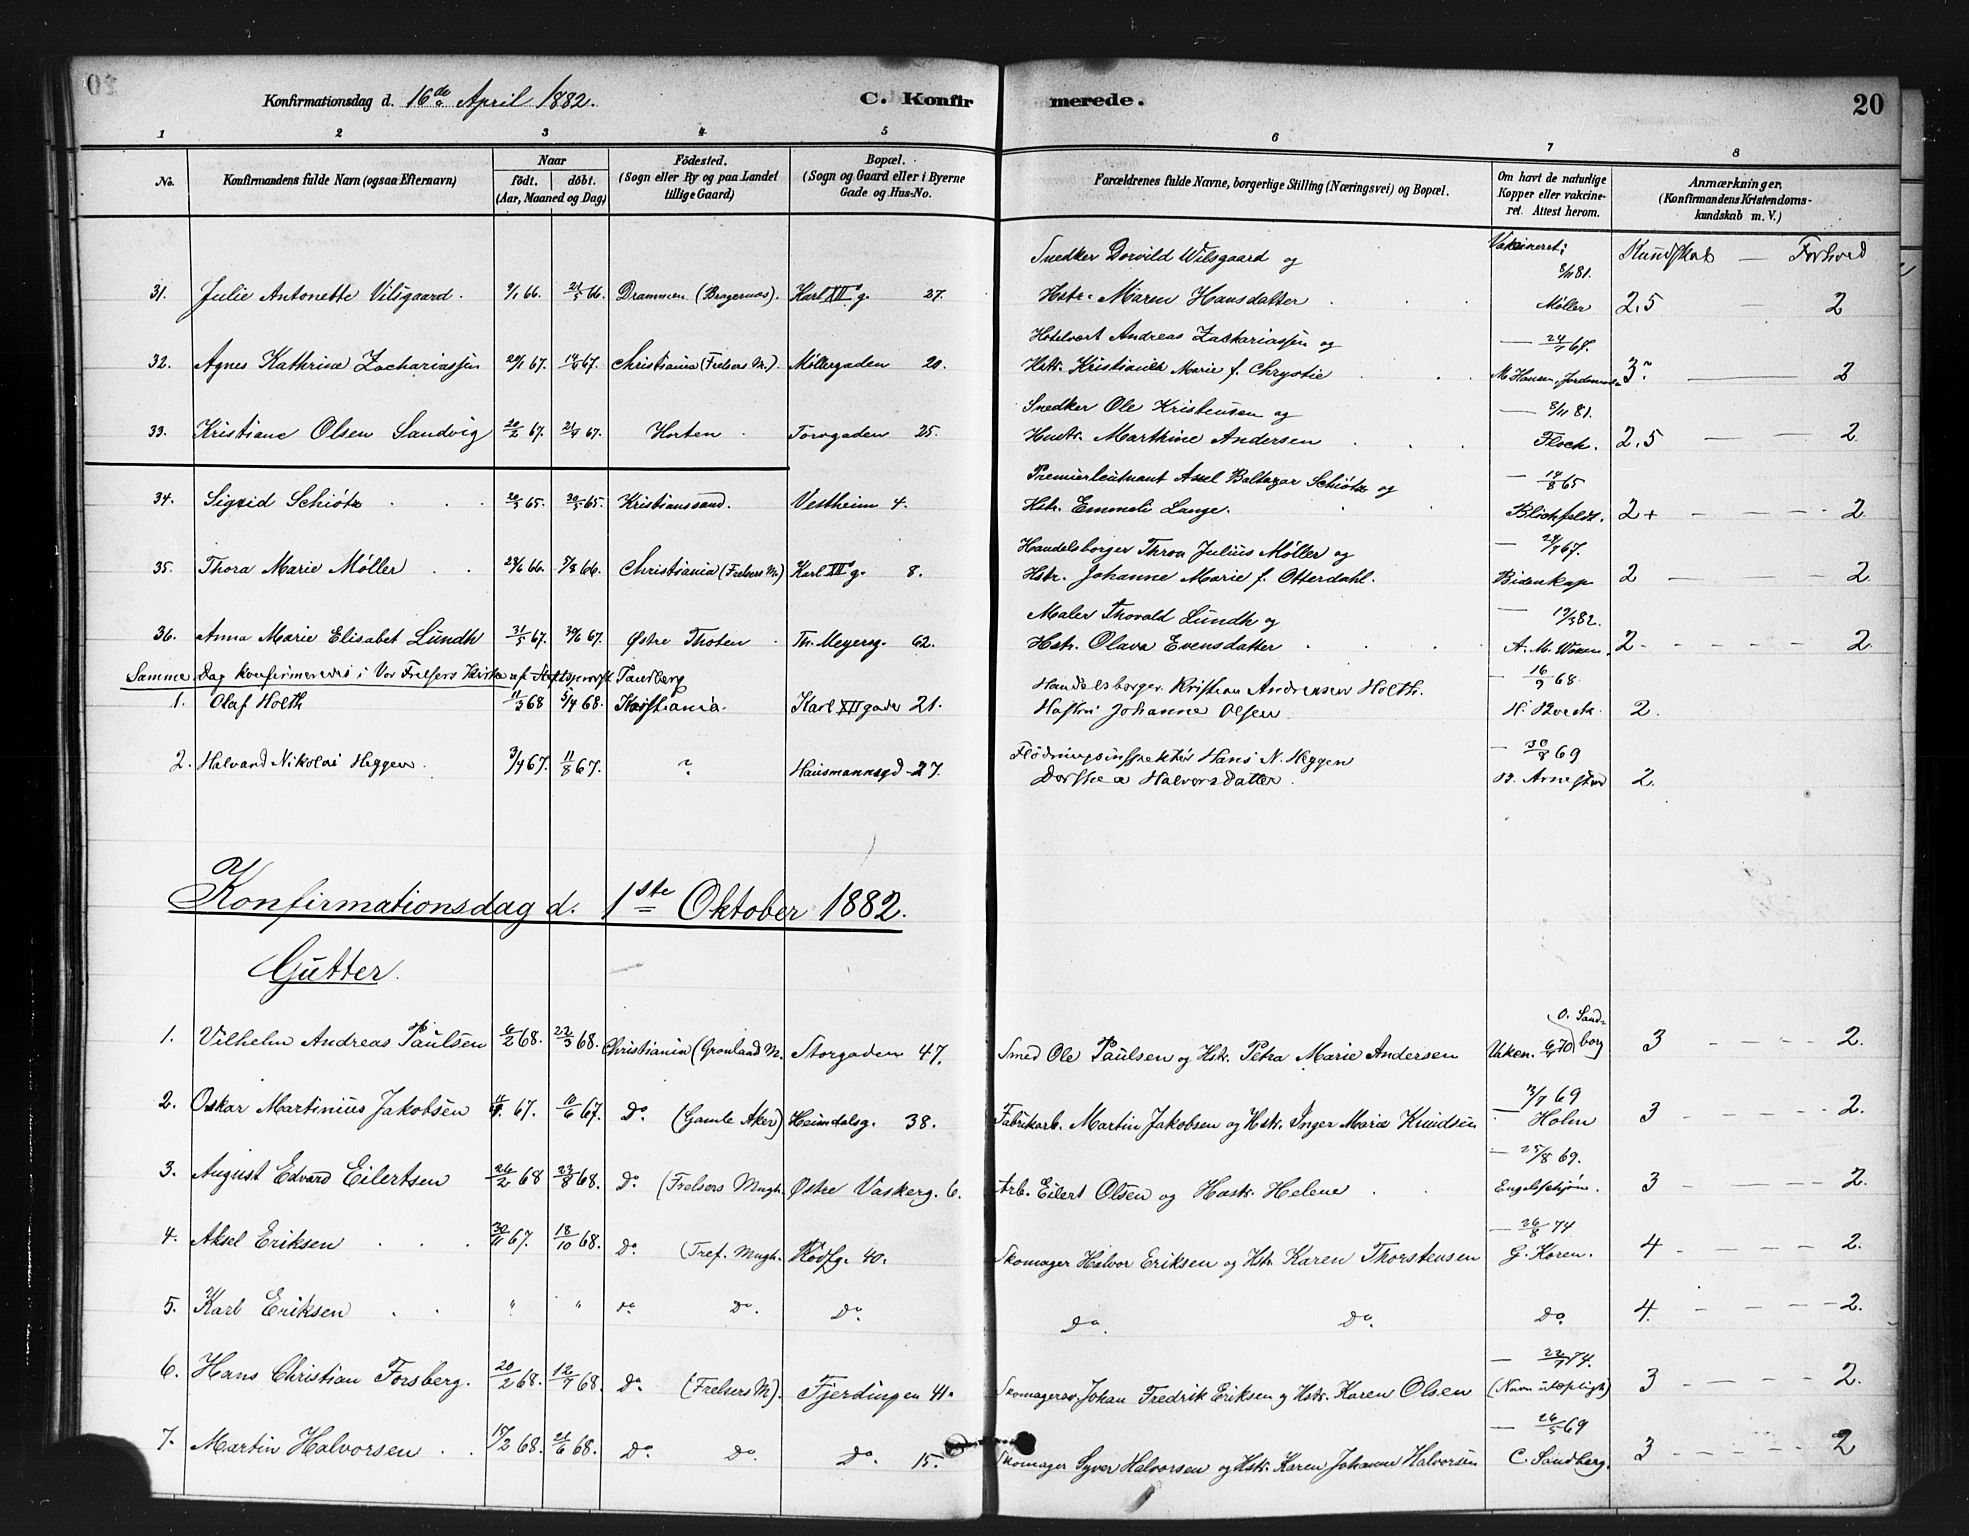 Konfirmationsdag d. 16de April 1882. C. Konfirmerede. 20
1 2 3 4 5 6 7 8
No. Konfirmandens fulde Navn (ogsaa Efternavn) Naar født. døbt. (Aar, Maaned og Dag) Fødested. (Sogn eller By og paa Landet tillige Gaard) Bopæl. (Sogn og Gaard eller i Byerne Gade og Hus-No. Forældrenes fulde Navne, borgerlige Stilling (Næringsvei) og Bopæl. Om havt de naturlige Kopper eller vakcineret. Attest herom. Anmærkninger. (Konfirmandens Kristendomskundskab m. V.)
Snedker Dorvild Wilsgaard og Vakcineret: 8/11 81. Kundskab — Forhold
31. Julie Antonette Vilsgaard. 9/1 66. 21/5 66. Drammen (Bragernæs). Karl XII's g. 27. Hstr. Maren Hansdatter Møller 2,5 — 2
Hotelvert Andreas Zachariassen og
32. Agnes Kathrine Zachariassen 67. 67. Christiania (Frelsers M.). Møllergaden 20. Marie f. Chrystie M. Hansen, 3 — 2
Snedker Ole Kristensen og — 8/11 81.
33. Kristiane Olsen Sandvig 20/2 67. 21/4 67. Horten Torvgaden 25. Hustr. Marthine Andersen Flock. 2,5 — 2
Premierleutnant Axel Baltazar Schiøtz og — 14/8 65
34. Sigrid Schiøtz 65. 65. Kristianssand. Vestheim 4. Hstr. Emmeli Lange. Blichfeldt. 2+ — 2.
Handelsborger Thron Julius Møller og — 67.
35. Thora Marie Møller 66. 66. Christiania (Frelsers M.) Karl XII's g. 8. Hstr. Johanne Marie f. Otterdahl. Bidenkap 2 — 2.
Maler Thorvald Lundh og — 82.
36. Anna Marie Elisabet Lundh 31/5 67. 67. Østre Thoten Th. Meyersg. 62. Hstr. Olava Evensdatter A. M. 2 — 2
Samme Dag konfirmeredes i Vor Frelsers Kirke af Stiftsprovst Tandberg
Handelsborger Kristian Andreasen Holth. — 16/9 68
1. Olaf Holth 11/3 68 5/4 68. Kristiania. Karl XII gade 21. Hustru Johanne Olsen 2.
Hans N. Heggen — 30/8 69
2. Halvard Nikolai Heggen. 3/4 67. 11/8 67. " Hausmannsgd 27. Dorthea Halvorsdatter. 2.
Konfirmationsdag d. 1ste Oktober 1882.
Gutter.
1. Vilhelm Andreas Paulsen 6/2 68. 22/3 68. Christiania (Grønland M. Storgaden 47. Smed Ole Paulsen og Hstr. Petra Marie Andersen Vakcn. 70 O. Sandborg 3 — 2.
2. Oskar Martinius Jakobsen 67. 10/6 67. Do (Gamle Aker) Heimdalsg. 38. Fabrikarb. Martin Jakobsen og Hstr. Inger Marie Knudsen 13/7 69 Holm 3 — 2.
3. August Edvard Eilertsen 26/2 68 23/8 68. Do (Frelsers Mngh. Østre Vaskerg. 6. Arb. Eilert Olsen og Hustr. Helene — 25/8 69. Engelschjøn. 3 — 2.
4. Aksel Eriksen 30/11 67. 18/10 68. Do (Tref. Mngh. Rødfg. 40. Skomager Halvor Eriksen og Hstr. Karen Thorstensen — 26/8 74 G. Koren. 4 — 2.
5. Karl Eriksen " " do Do. Do Do. Do. Do. 4. — 2.
6. Hans Christian Forsberg. 20/2 68. 12/7 68. Do (Frelsers M). Fjerdingen 41. Skomagersv. Johan Fredrik Eriksen og Hstr. Karen Olsen — 74. (Navn ulæseligt) 3 — 2.
7. Martin Halvorsen 15/2 68. 21/6 68. Do. Do. Do. 15. Skomager Syver Halvorsen og Hstr. Karen Johanne Halvorsen — 26/5 69 C. Sandberg. 3 — 2